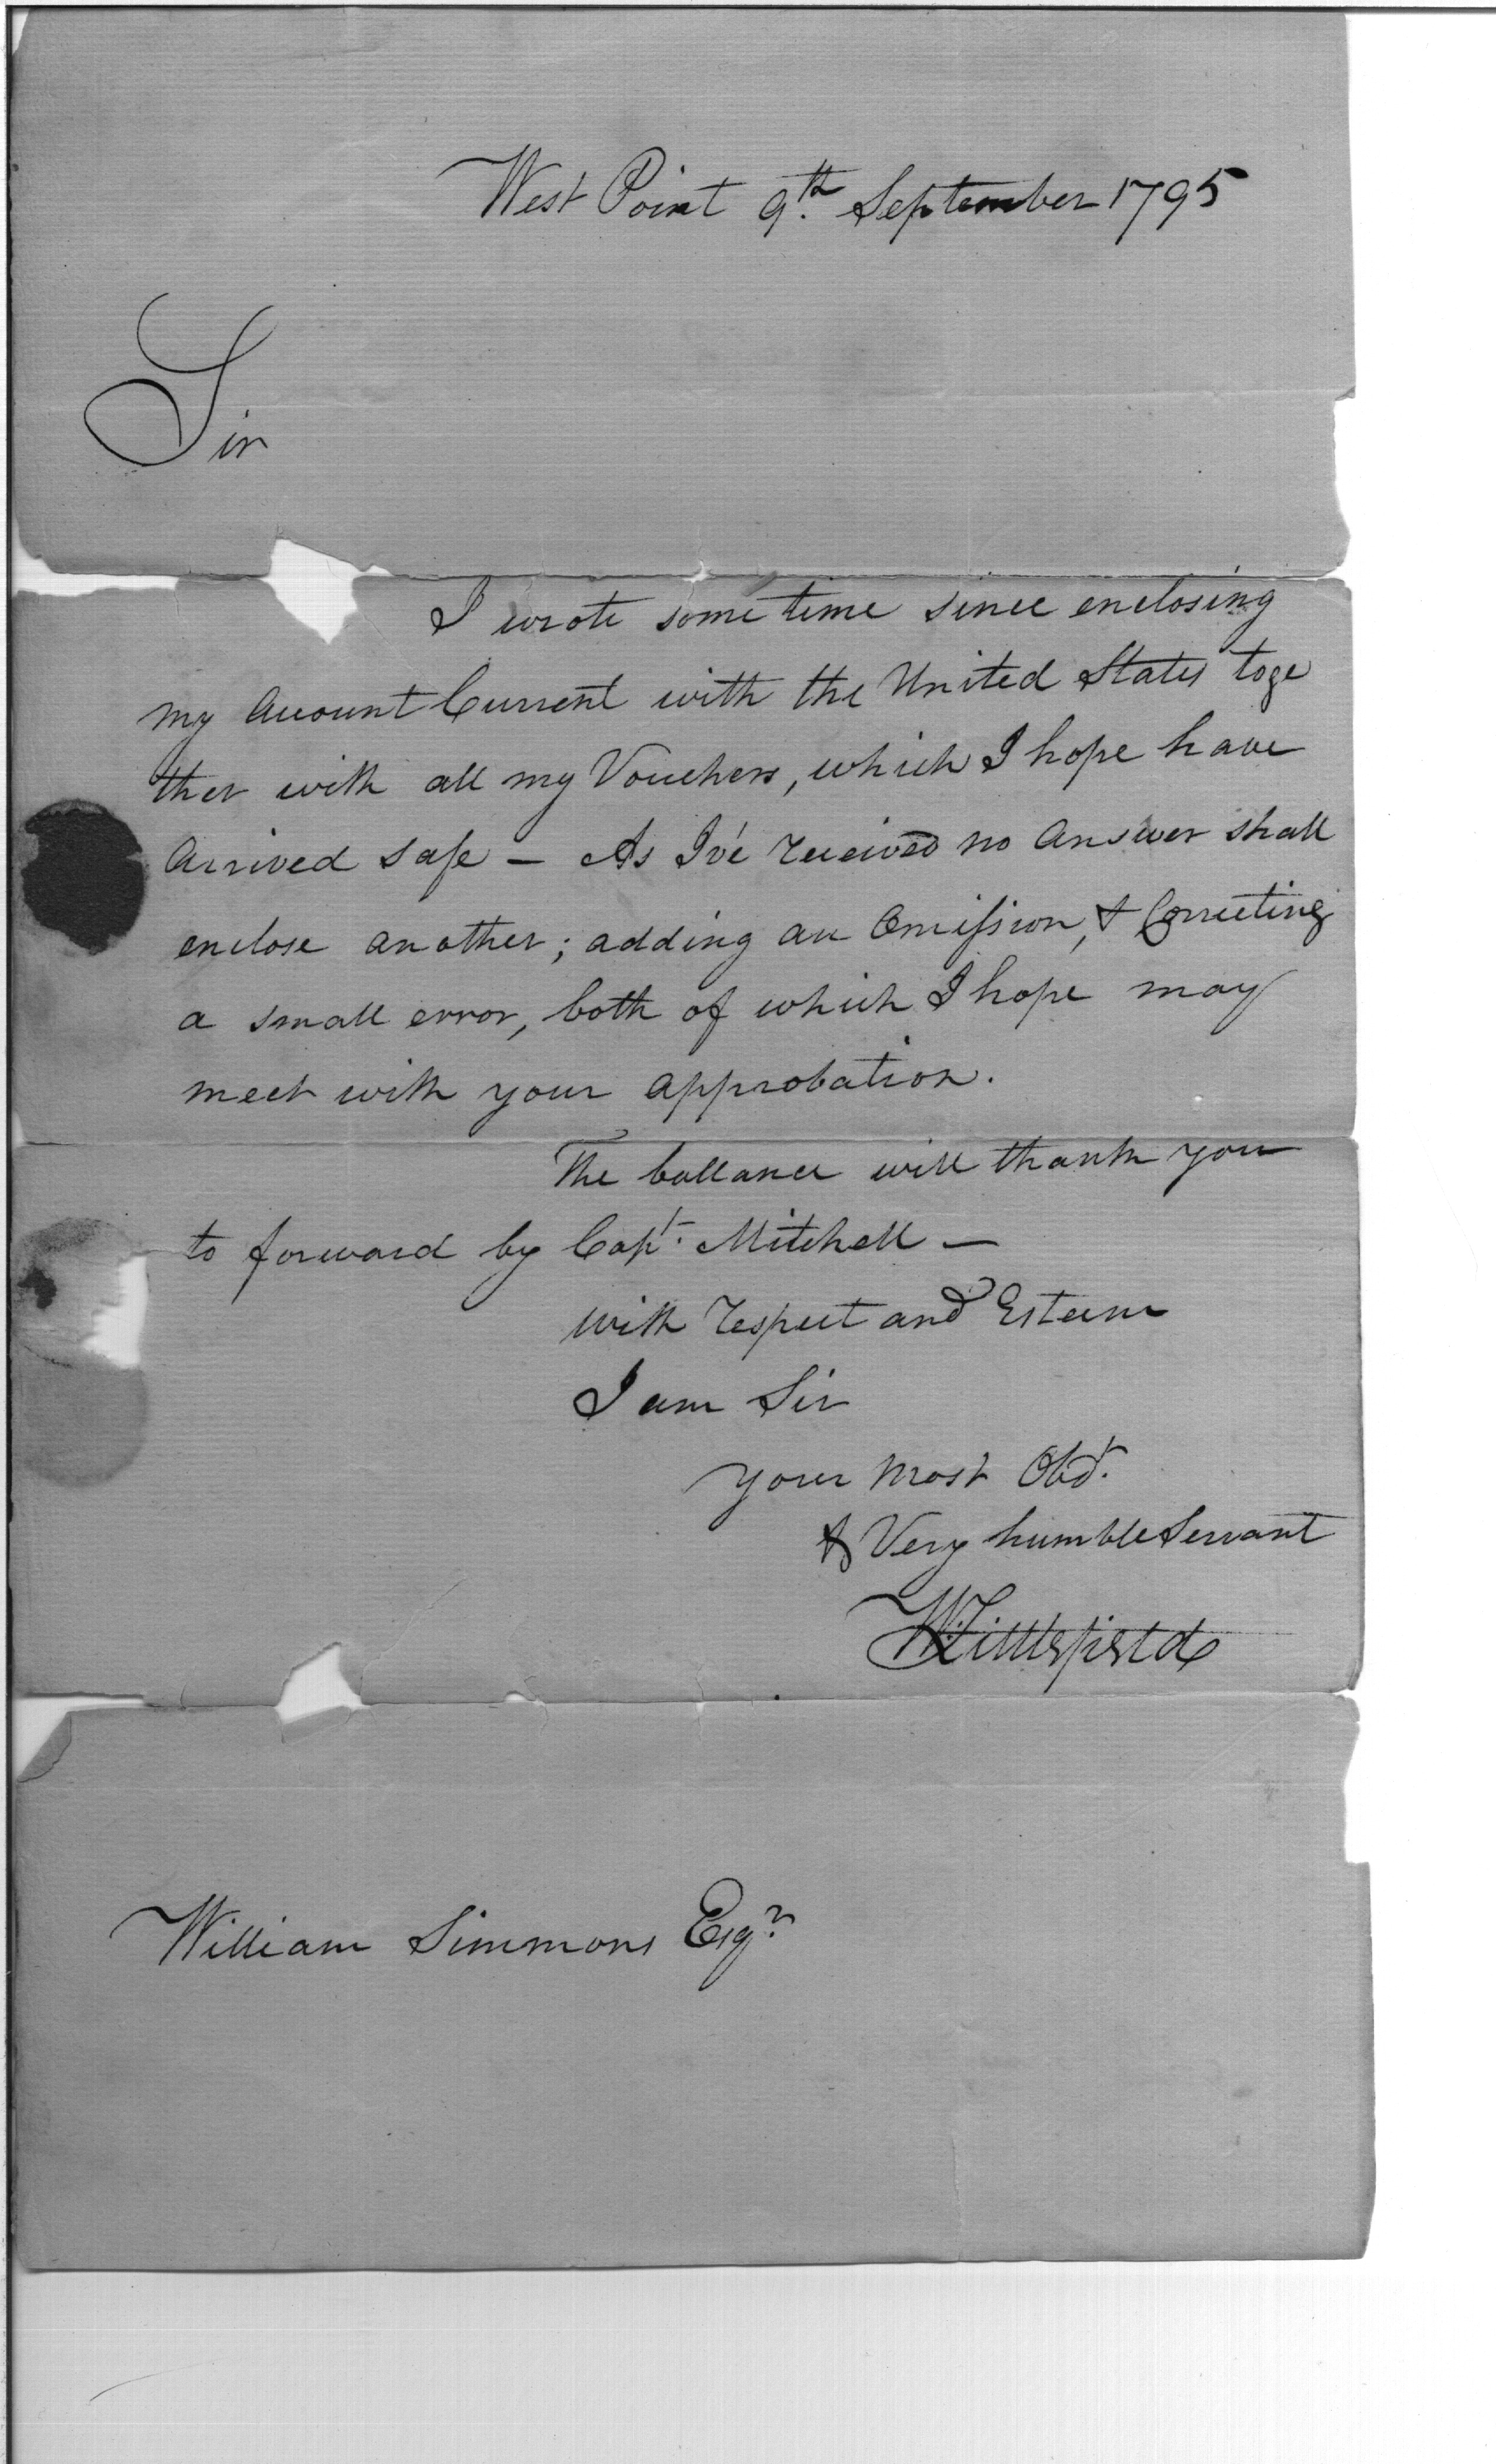 West Point 9th. September 1795
Sir
I wrote some time since enclosing
my Account Current with the United States toge
ther with all my Vouchers, which I hope have
Arrived safe – As I've received no Answer shall
enclose another; adding an Omission, & Correcting
a small error, both of which I hope may
meet with your approbation.
The ballance will thank you
to forward by Capt. Mitchell –
with respect and Esteem
I am Sir
your most Obdt.
& Very humble Servant
W: Littlefield
William Simmons Esqr.